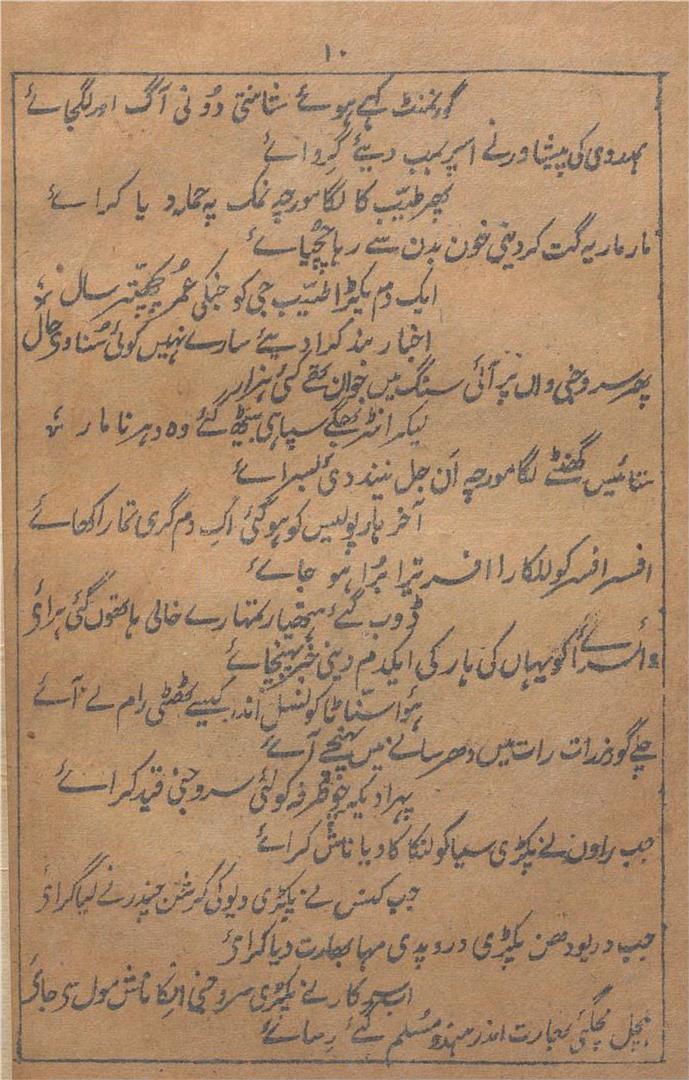 ۱۰
گورنمنٹ کہے ہوئے شانتی دُونی آگ اور لگجائے
ہمدوی کی پیشاور نے اسپر بمب دیئے گروائے
پھر طیّب کا لگا مورچہ نمک پہ حملہ دیا کرائے
مار مار یہ گت کر دینی خون بدن سے رہا چُچیائے
ایک دم پکڑا طیّب جی کو جنکی عمر چھہتّر سال
اخبار بند کرا دیئے سارے نہیں کوئی سُناوے حال
پھر سروجنی واں پر آئی سنگ میں جوان تھے کئی ہزار
لیکر انٹر جنکے سپاہی بیٹھ گئے وہ دہرنا مار
ستائیس گھنٹے لگا مورچہ اَن جل نیند دئی بسرائے
آخر ہار پولیس کو ہو گئی اک دم گری تمارا کھائے
افسر افسر کو للکارا افسر تیرا بُرا ہو جائے
ڈوب گئے ہتھیار تمہارے خالی ہاتھوں گئی ہرائ
وائسرائے کو یہاں کی ہار کی ایکدم دینی خبر پہنچائے
ہوُا سنّاٹا کونسل اندر کیسے کٹھٹی رام لے آئے
چلے گورنر رات رات میں دھرسانے میں پہنچے آئے
پہرا دیکر چو طرفہ کو لئی سروجنی قید کرائے
جب راون نے پکڑی سیا کو لنکا کا دیا ناش کرائے
جب کنس نے پکڑی دیوکی کرشن چندر نے لیا گرائ
جب دریودھن پکڑی دروپدی مہابھارت دیا کرائ
اب سرکار نے پکڑی سروجنی انکا ناش مول ہو جائ
ہلچل مچگئی بھارت اندر ہندو مسلم گئے رسائے